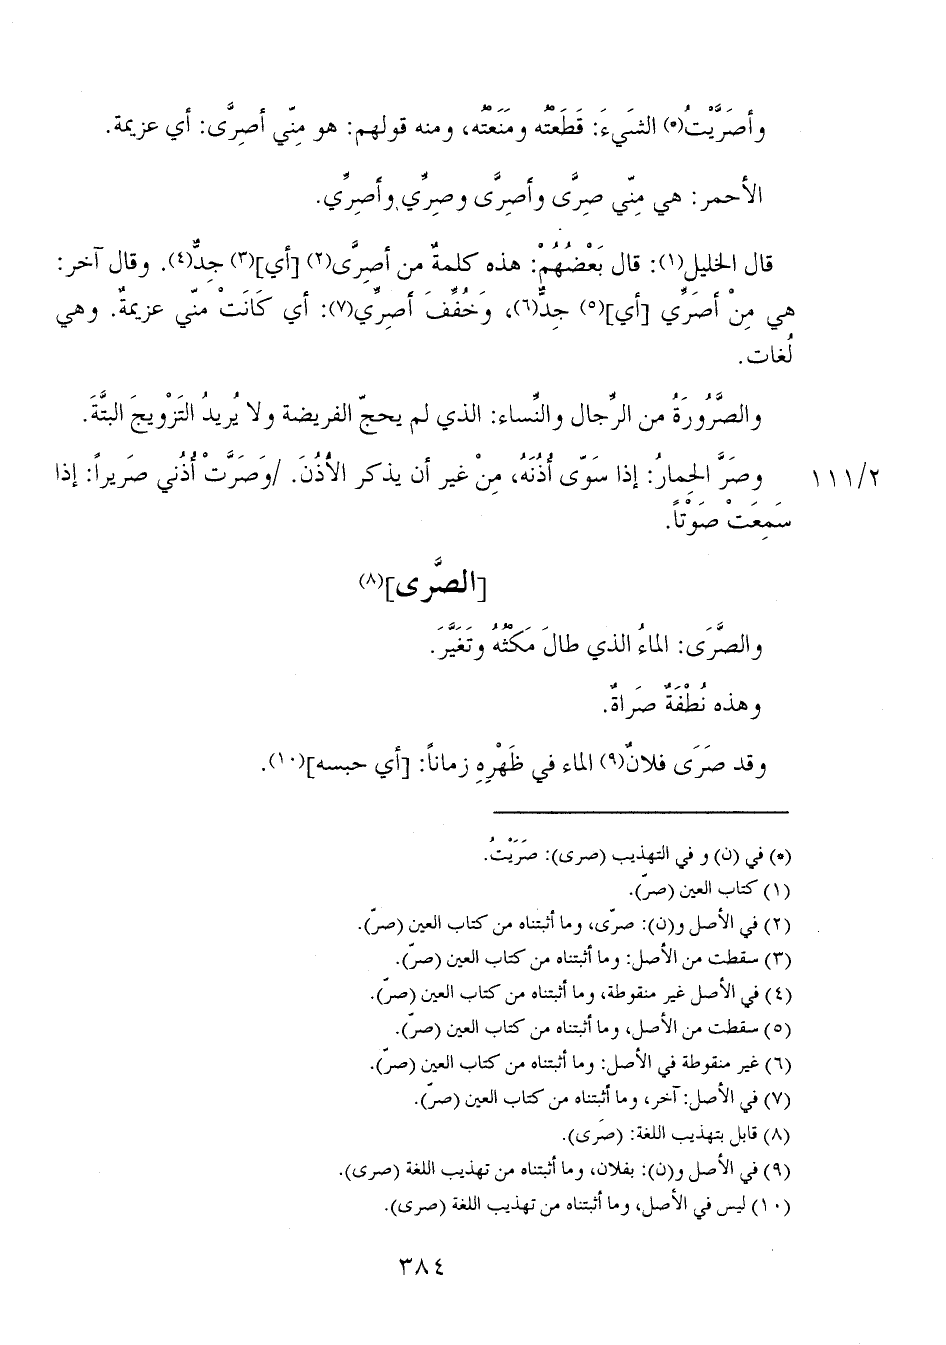 وأصَرَّيْتُ(*) الشَيءَ: قَطَعْتُه ومَنَعْتُه، ومنه قولهم: هو مِنّي أصِرَّى: أي عزيمة.
الأحمر: هي مِنّي صِرَّى وأصِرَّى وصِرِّي وأصِرِّي.
قال الخليل(١): قال بَعْضُهُمْ: هذه كلمةٌ من أصِرَّى(٢) [أي](٣) جِدٌّ(٤). وقال آخر:
هي مِنْ أصَرِّي [أي](٥) جِدٌّ(٦)، وَخُفِّفَ أصِرِّي(٧): أي كَانَتْ منّي عزيمةٌ. وهي
لُغات.
والصَّرُورَةُ من الرِّجال والنِّساء: الذي لم يحجّ الفريضة ولا يُريدُ التَزْويجَ البتَّةَ.
وصَرَّ الحِمارُ: إذا سَوّى أُذُنَهُ، مِنْ غير أن يذكر الأُذُنَ. /وَصَرَّتْ أُذُني صَريراً: إذا ١١١/٢
سَمِعَتْ صَوْتاً.
[الصَّرى](٨)
والصَّرَى: الماءُ الذي طالَ مَكْثُهُ وتَغَيَّرَ.
وهذه نُطْفَةٌ صَراةٌ.
وقد صَرَى فلانٌ(٩) الماء في ظَهْرِهِ زماناً: [أي حبسه](١٠).
(*) في (ن) و في التهذيب (صرى): صَرَيْتُ.
(١) كتاب العين (صرّ).
(٢) في الأصل و(ن): صرّى، وما أثبتناه من كتاب العين (صرّ).
(٣) سقطت من الأصل: وما أثبتناه من كتاب العين (صرّ).
(٤) في الأصل غير منقوطة، وما أثبتناه من كتاب العين (صرّ).
(٥) سقطت من الأصل، وما أثبتناه من كتاب العين (صرّ).
(٦) غير منقوطة في الأصل: وما أثبتناه من كتاب العين (صرّ).
(٧) في الأصل: آخر، وما أثبتناه من كتاب العين (صرّ).
(٨) قابل بتهذيب اللغة: (صَرى).
(٩) في الأصل و(ن): بفلان، وما أثبتناه من تهذيب اللغة (صرى).
(١٠) ليس في الأصل، وما أثبتناه من تهذيب اللغة (صرى).
٣٨٤